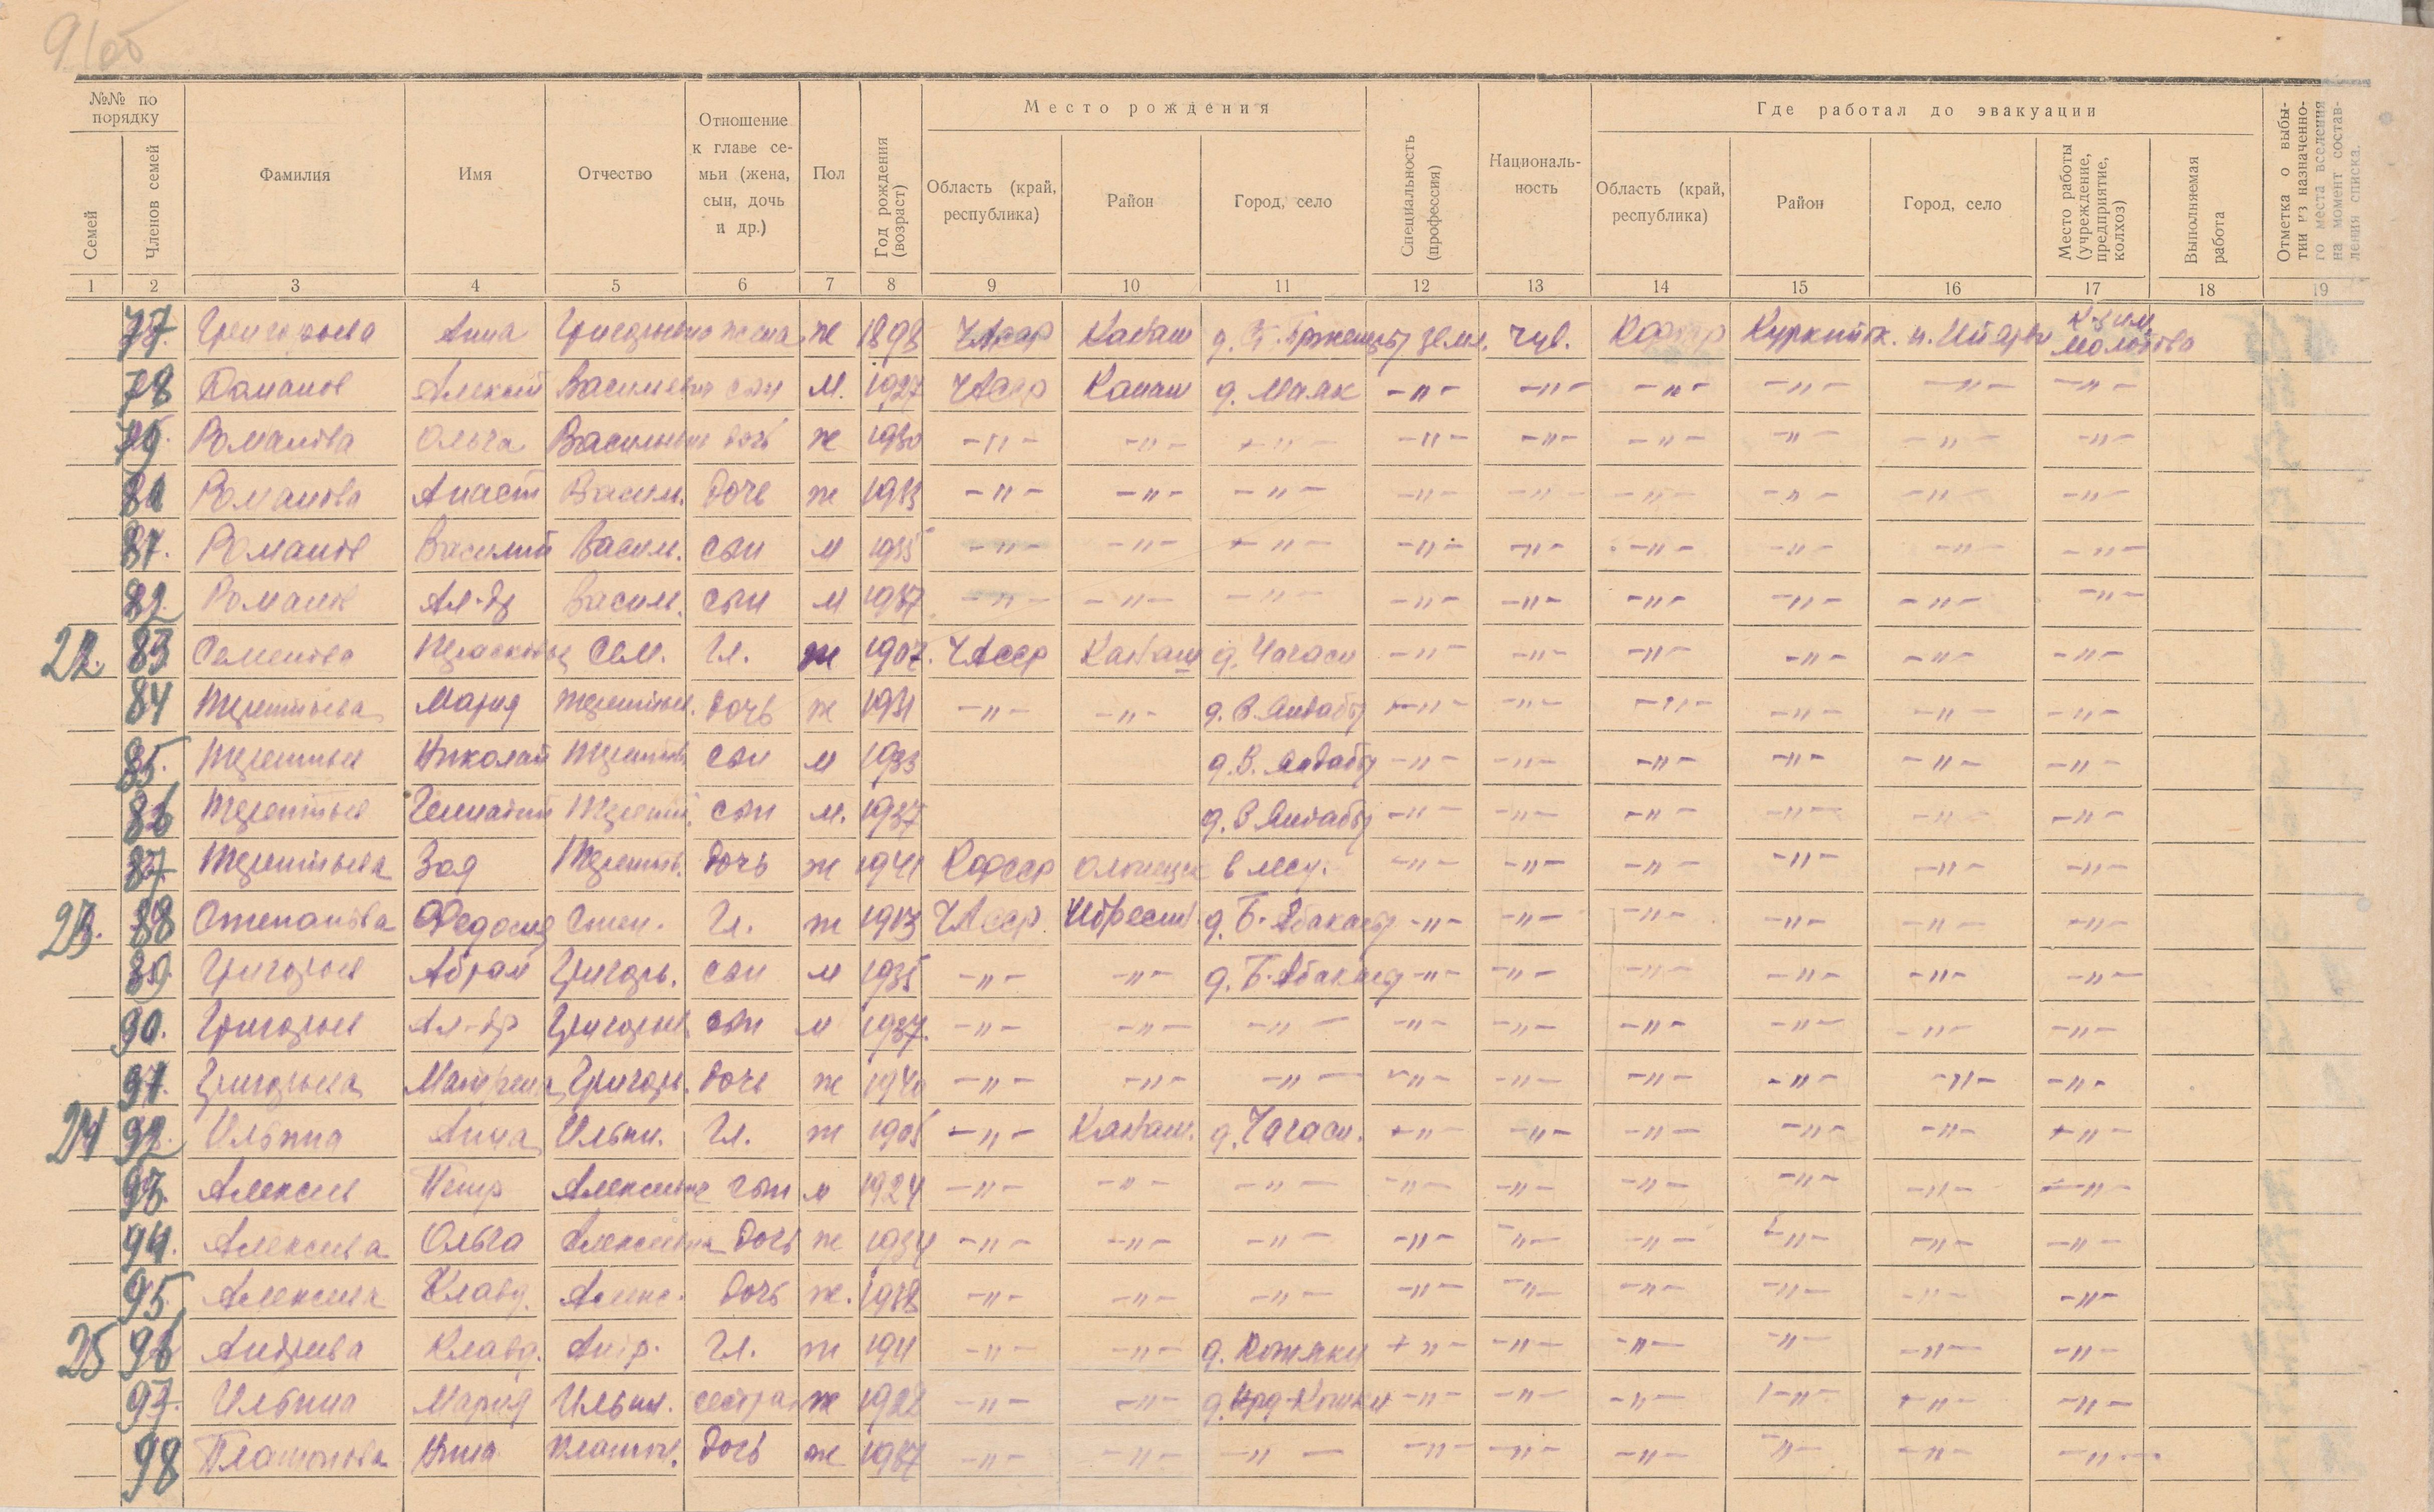 91об
№№ по порядку
Семей
Членов семей
Фамилия
Имя
Отчество
Отношение к главе семьи (жена, сын, дочь и др.)
Пол
Год рождения (возраст)
Место рождения
Область (край, республика)
Район
Город, село
Специальность (профессия)
Националь-ность
Где работал до эвакуации
Область (край, республика)
Район
Город, село
Место работы (учреждение, предприятие, колхоз)
Выполняемая работа
Отметка о выбы-тии из назначенно-го места вселения на момент состав-ления списка.
1 2 3 4 5 6 7 8 9 10 11 12 13 14 15 16 17 18 19
77. Григорьева Анна жена ж 1898 ЧАсср Канаш чув. Молотова
78 Романов Алексей Васильевич сын м. 1927 ЧАсср Канаш д. Маяк -"- -"- -"- -"- -"- -"-
79. Романова Ольга Васильевна дочь ж 1930 -"- -"- -"- -"- -"- -"- -"- -"- -"-
80 Романова Анаст Васил. дочь ж 1933 -"- -"- -"- -"- -"- -"- -"- -"- -"-
81. Романов Василий Васил. сын м 1935 -"- -"- -"- -"- -"- -"- -"- -"- -"-
82. Романов Ал-др Васил. сын м 1937 -"- -"- -"- -"- -"- -"- -"- -"- -"-
22. 83 Семенова Прасковья Сем. Гл. ж 1907. ЧАсср Канаш д. Чагаси -"- -"- -"- -"- -"- -"-
84 Терентьева Мария Терентьев. дочь ж 1931 -"- -"- -"- -"- -"- -"- -"- -"-
85. Терентьев Николай Терентьев сын м 1933 -"- -"- -"- -"- -"- -"-
86 Терентьев Геннадий Терентьев. сын м. 1937 -"- -"- -"- -"- -"- -"-
87 Терентьева Зоя Терентьев. дочь ж 1941 Кфсср Олонецк в лесу. -"- -"- -"- -"- -"- -"-
23. 88 Степанова Федосия Степ. Гл. ж 1913 ЧАсср Ибресин. д. Б. Абакасы -"- -"- -"- -"- -"- -"-
89. Григорьев Абрам Григорь. сын м 1935 -"- -"- д. Б. Абакасы -"- -"- -"- -"- -"- -"-
90. Григорьев Ал-др Григорьев. сын м 1937. -"- -"- -"- -"- -"- -"- -"- -"- -"-
91. Григорьева Матрена Григорь. дочь ж 1940 -"- -"- -"- -"- -"- -"- -"- -"- -"-
24 92. Ильина Анна Ильин. Гл. ж 1905 -"- Канаш. д. Чагаси. -"- -"- -"- -"- -"- -"-
93. Алексеев Петр Алексеевич сын м 1924 -"- -"- -"- -"- -"- -"- -"- -"- -"-
94. Алексеева Ольга Алексеевна дочь ж 1934 -"- -"- -"- -"- -"- -"- -"- -"- -"-
95. Алексеева Клавд. Алекс. дочь ж. 1938 -"- -"- -"- -"- -"- -"- -"- -"- -"-
25 96 Андреева Клавд. Андр. Гл. ж 1911 -"- -"- -"- -"- -"- -"- -"- -"-
97. Ильина Мария Ильин. сестра ж 1922 -"- -"- -"- -"- -"- -"- -"- -"-
98 Платонова Нина Платон. дочь ж 1937 -"- -"- -"- -"- -"- -"- -"- -"- -"-